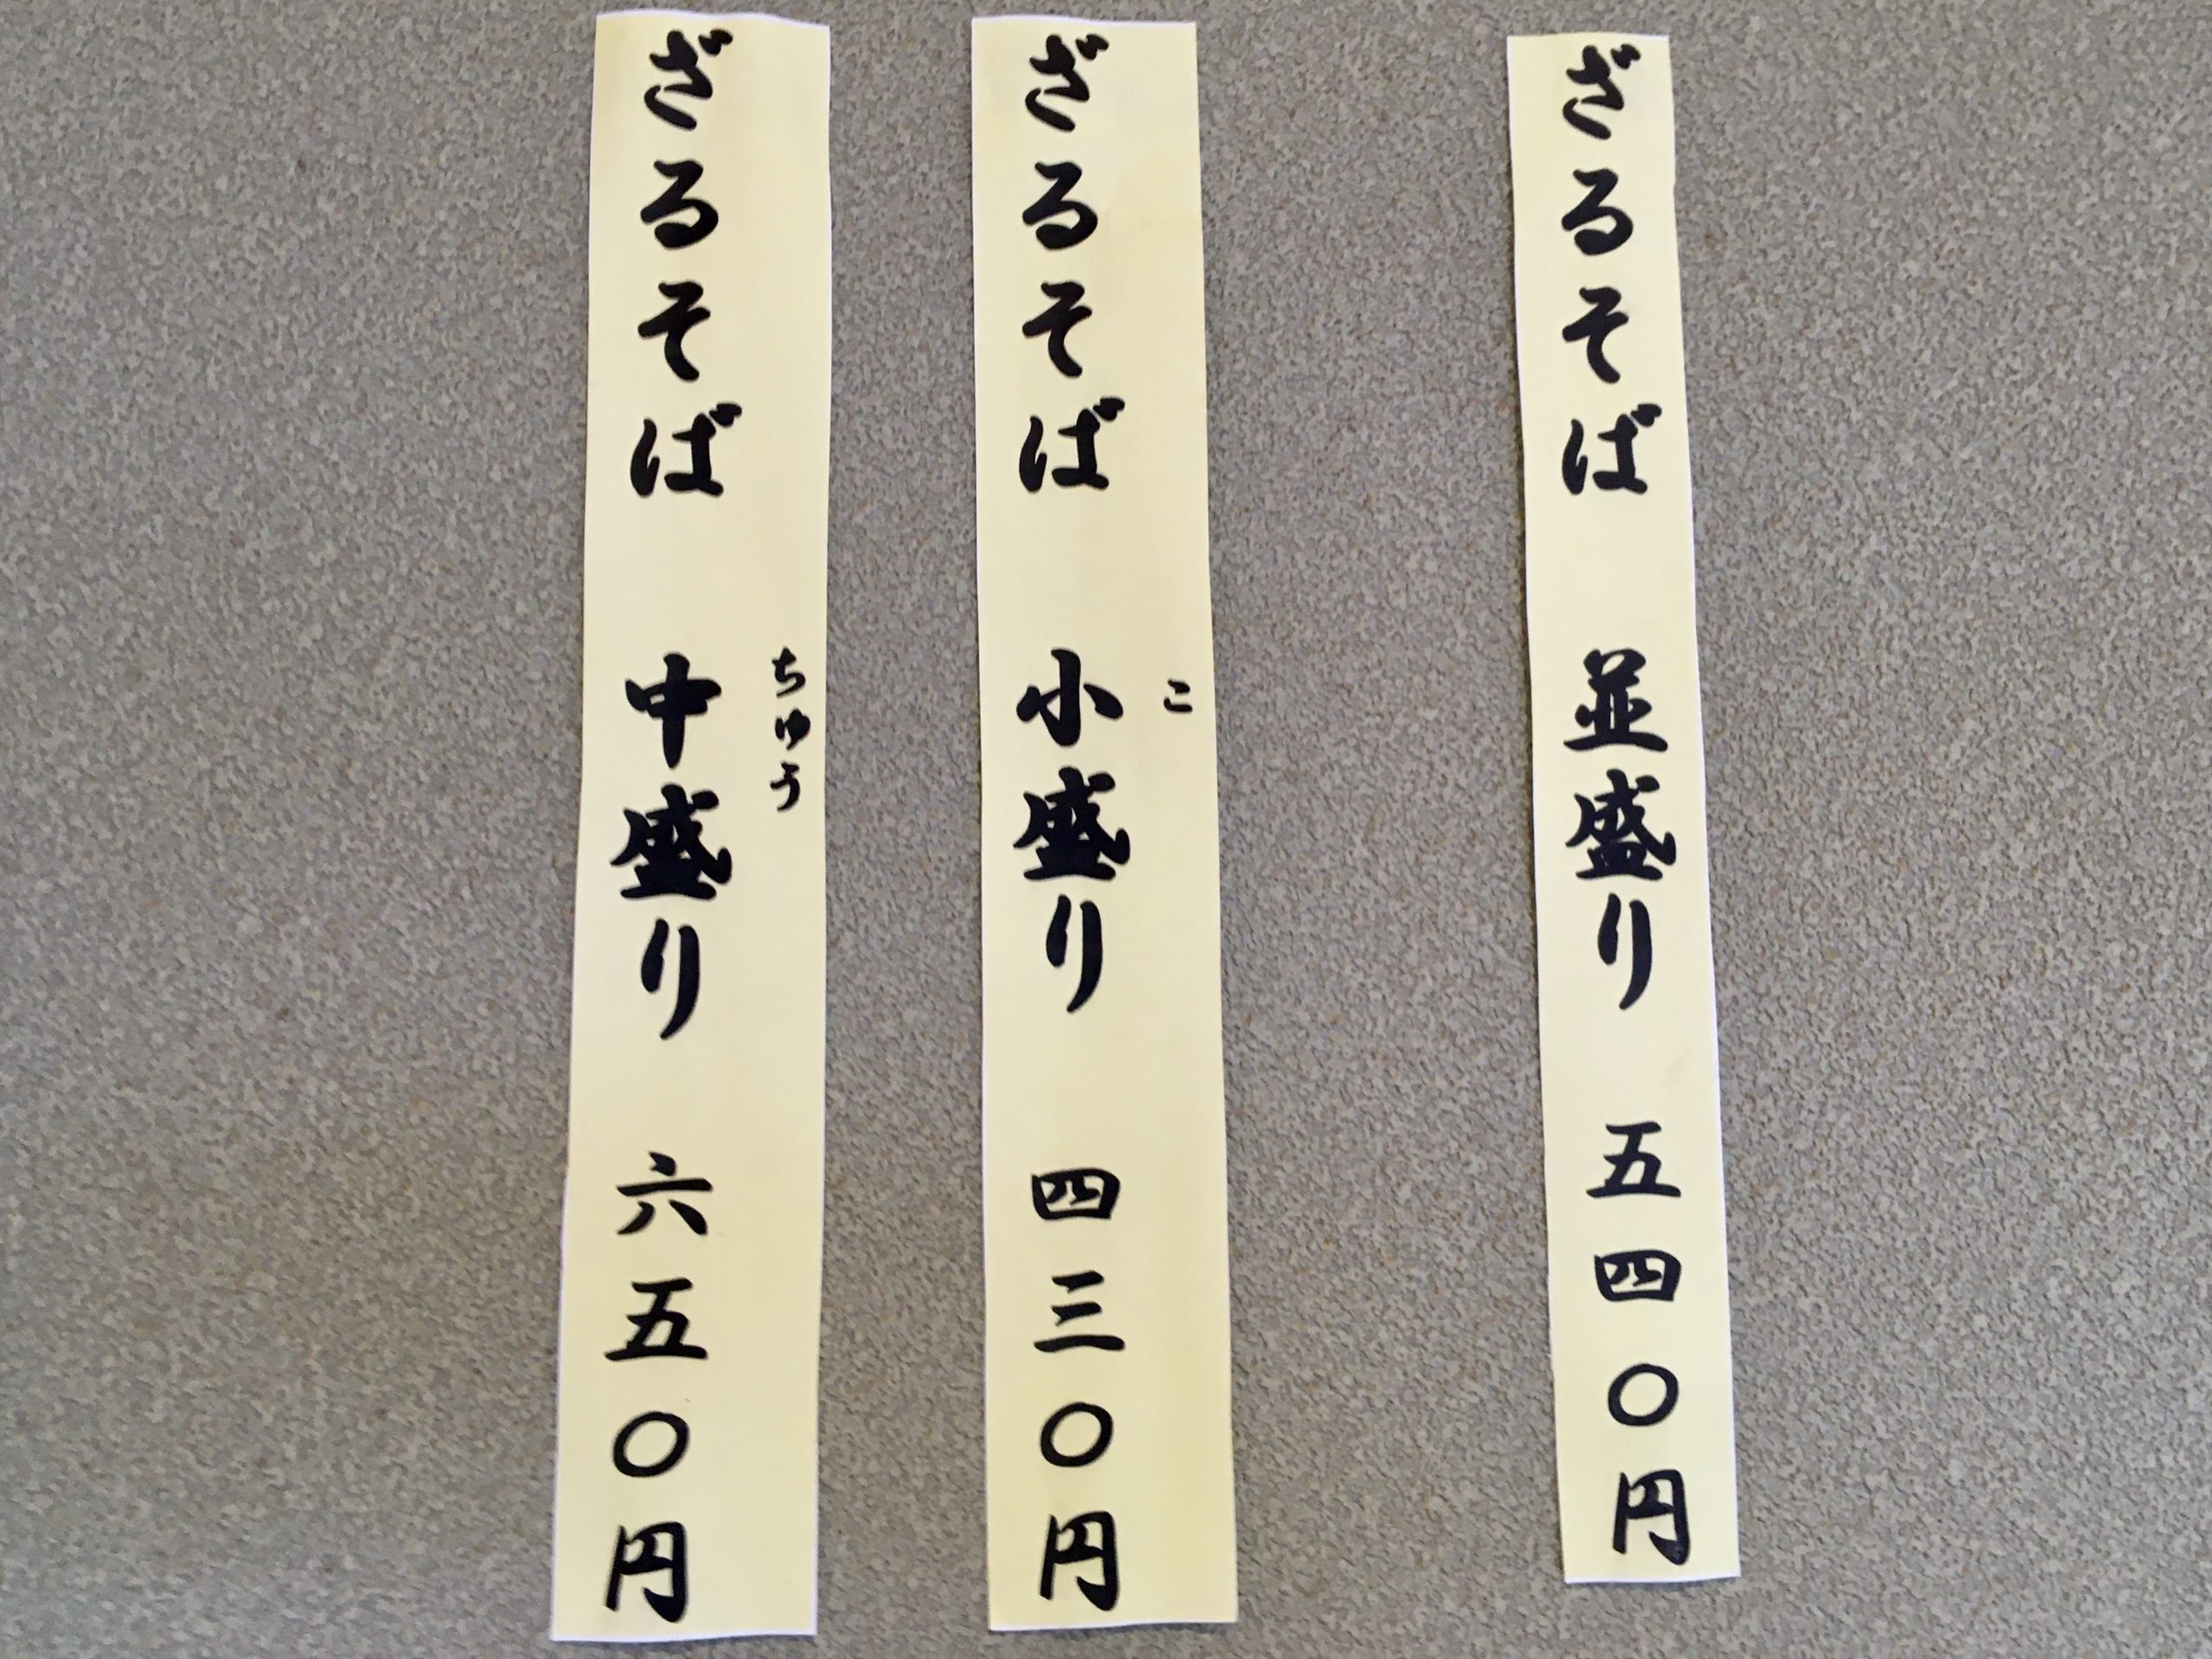 ざるそば 並盛り 五四〇円
ざるそば 小盛り 四三〇円
こ
ざるそば 中盛り 六五〇円
ちゅう